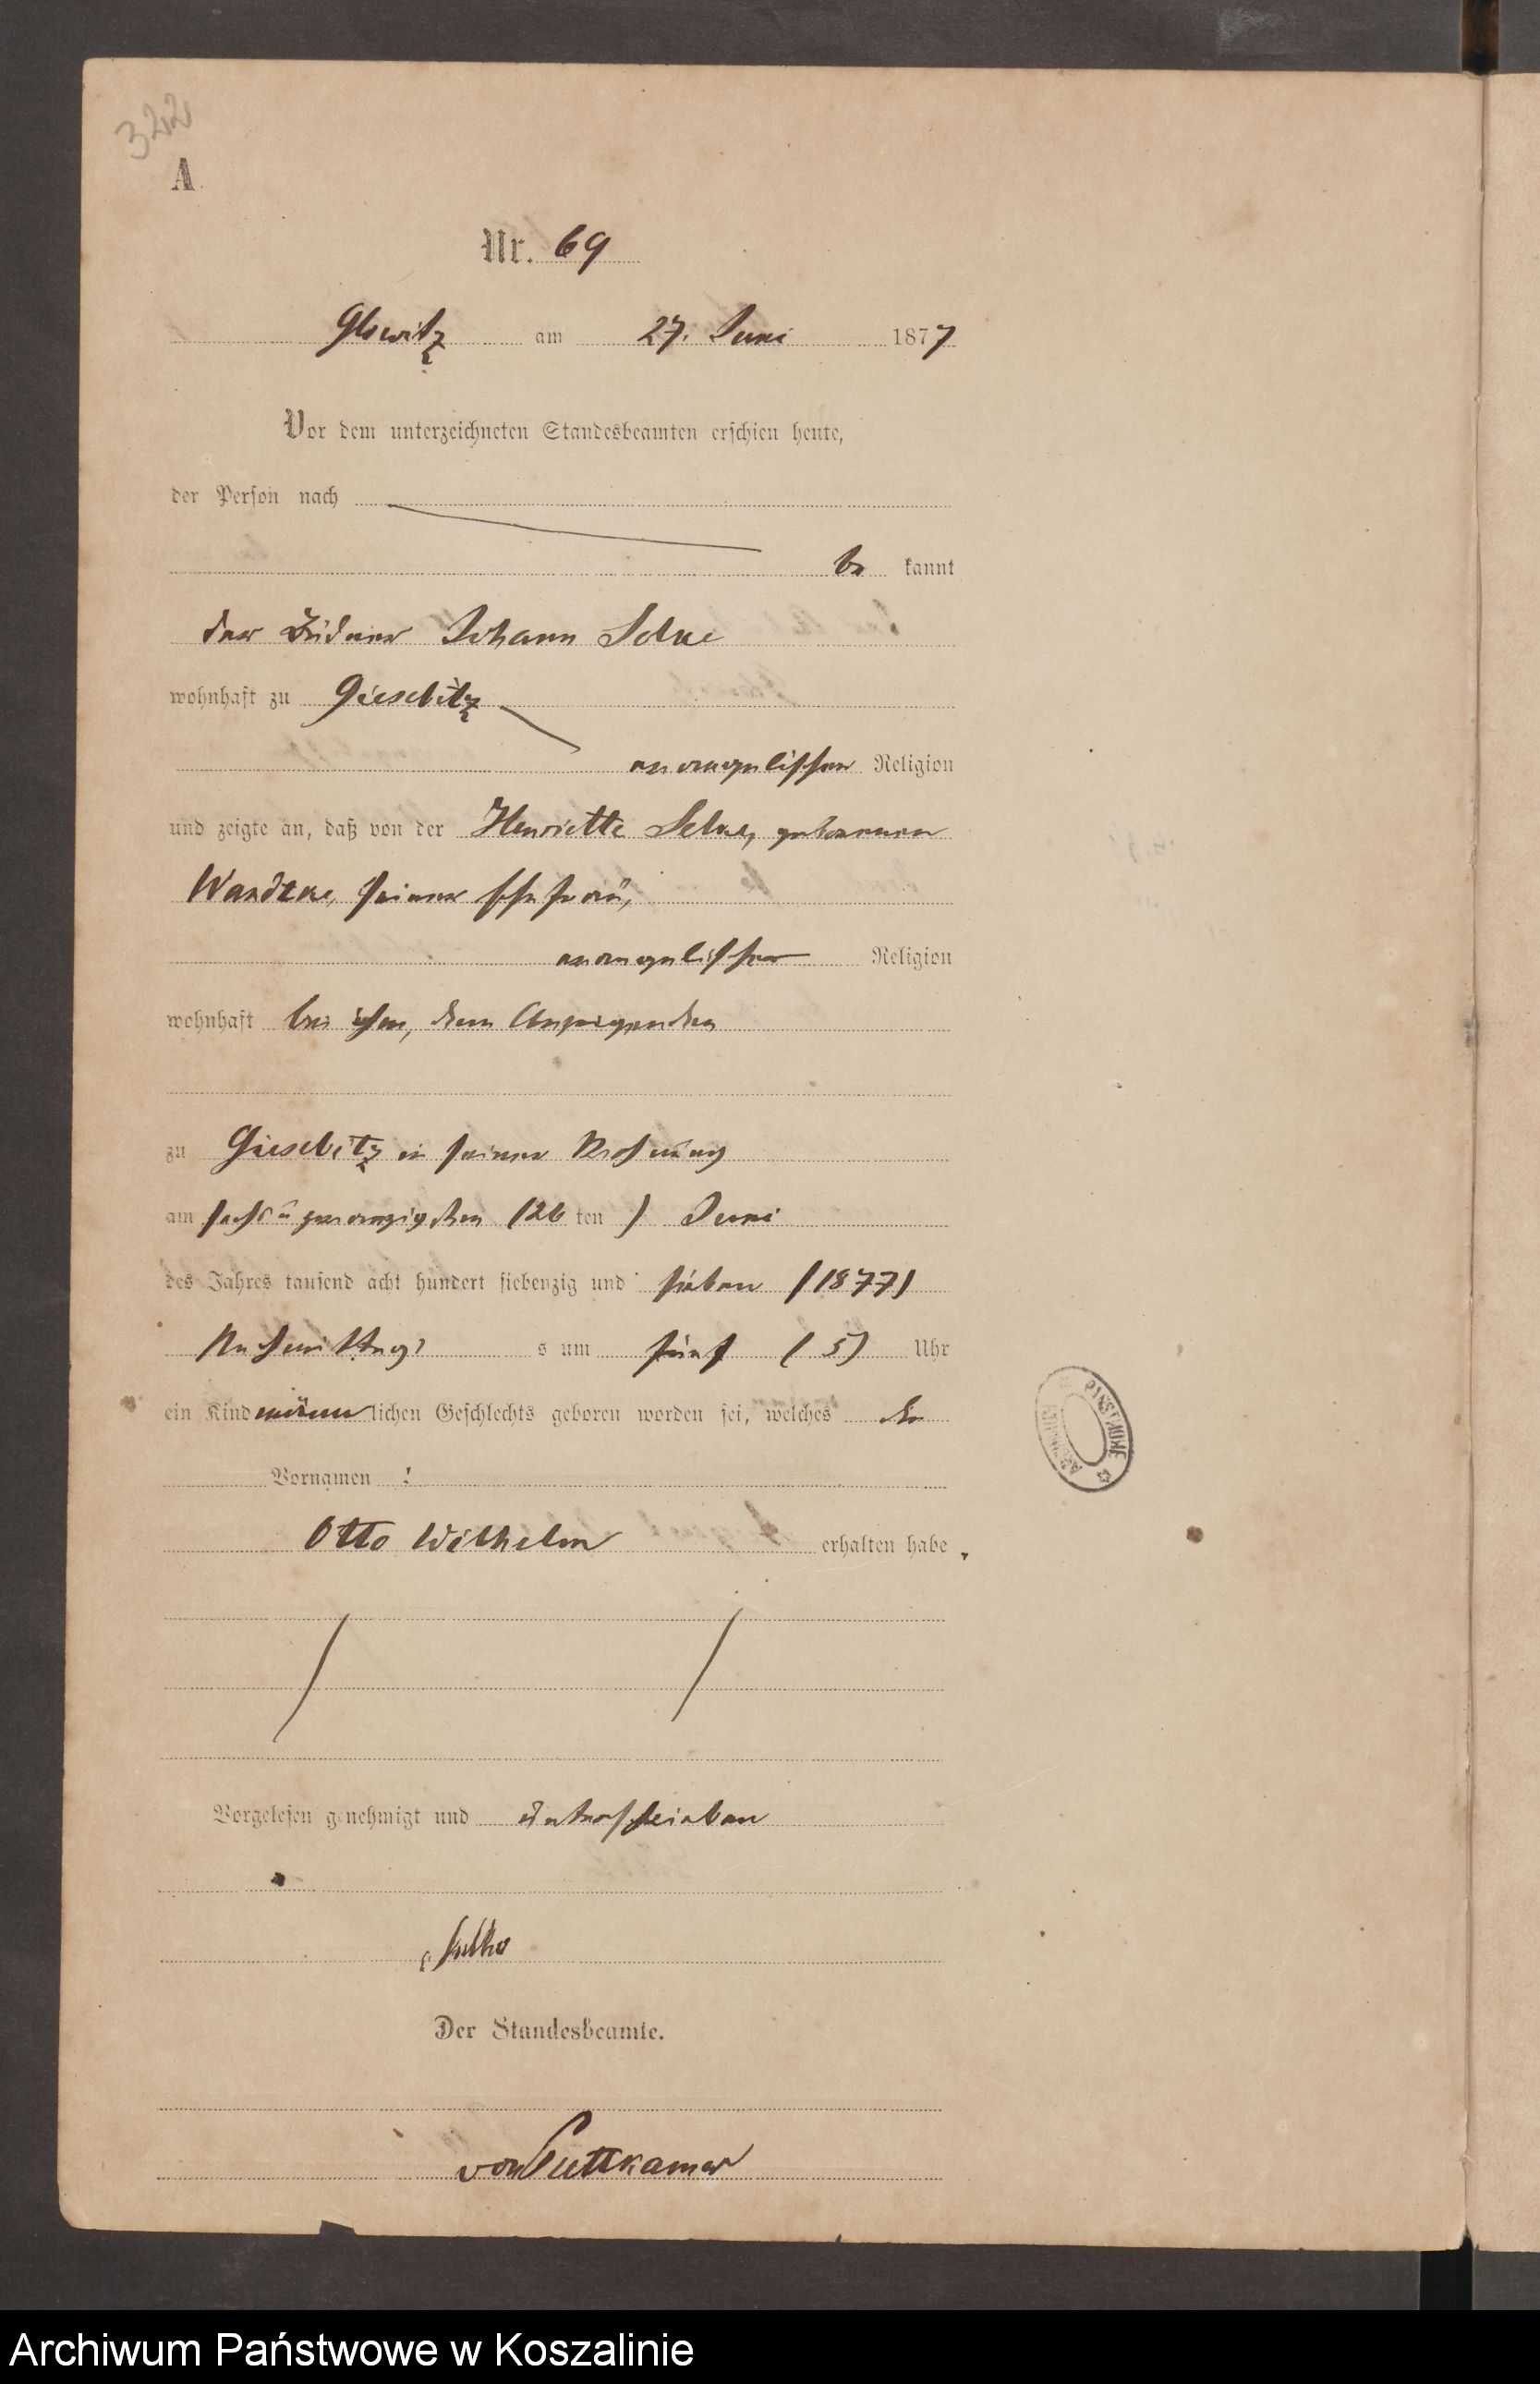 322
A
Nr. 69
Glowitz am 27. Juni 1877
Vor dem unterzeichneten Standesbeamten erschien heute,
der Person nach
be kannt
der Büdner Johann Selke
wohnhaft zu Giesebitz
evangelischer Religion
und zeigte an, daß von der Henriette Selke, geborenen
Wandtke, seiner Ehefrau,
evangelischer Religion
wohnhaft bei ihm, dem Anzeigenden
zu Giesebitz in seiner Wohnung
am sechsundzwanzigsten (26 ten) Juni
des Jahres tausend acht hundert siebenzig und sieben (1877)
Nachmittags um fünf (5) Uhr
ein Kind männlichen Geschlechts geboren worden sei, welches die
Vornamen :
Otto Wilhelm erhalten habe.
Vorgelesen genehmigt und unterschrieben
Der Standesbeamte.
von Puttkamer
Archiwum Państwowe w Koszalinie